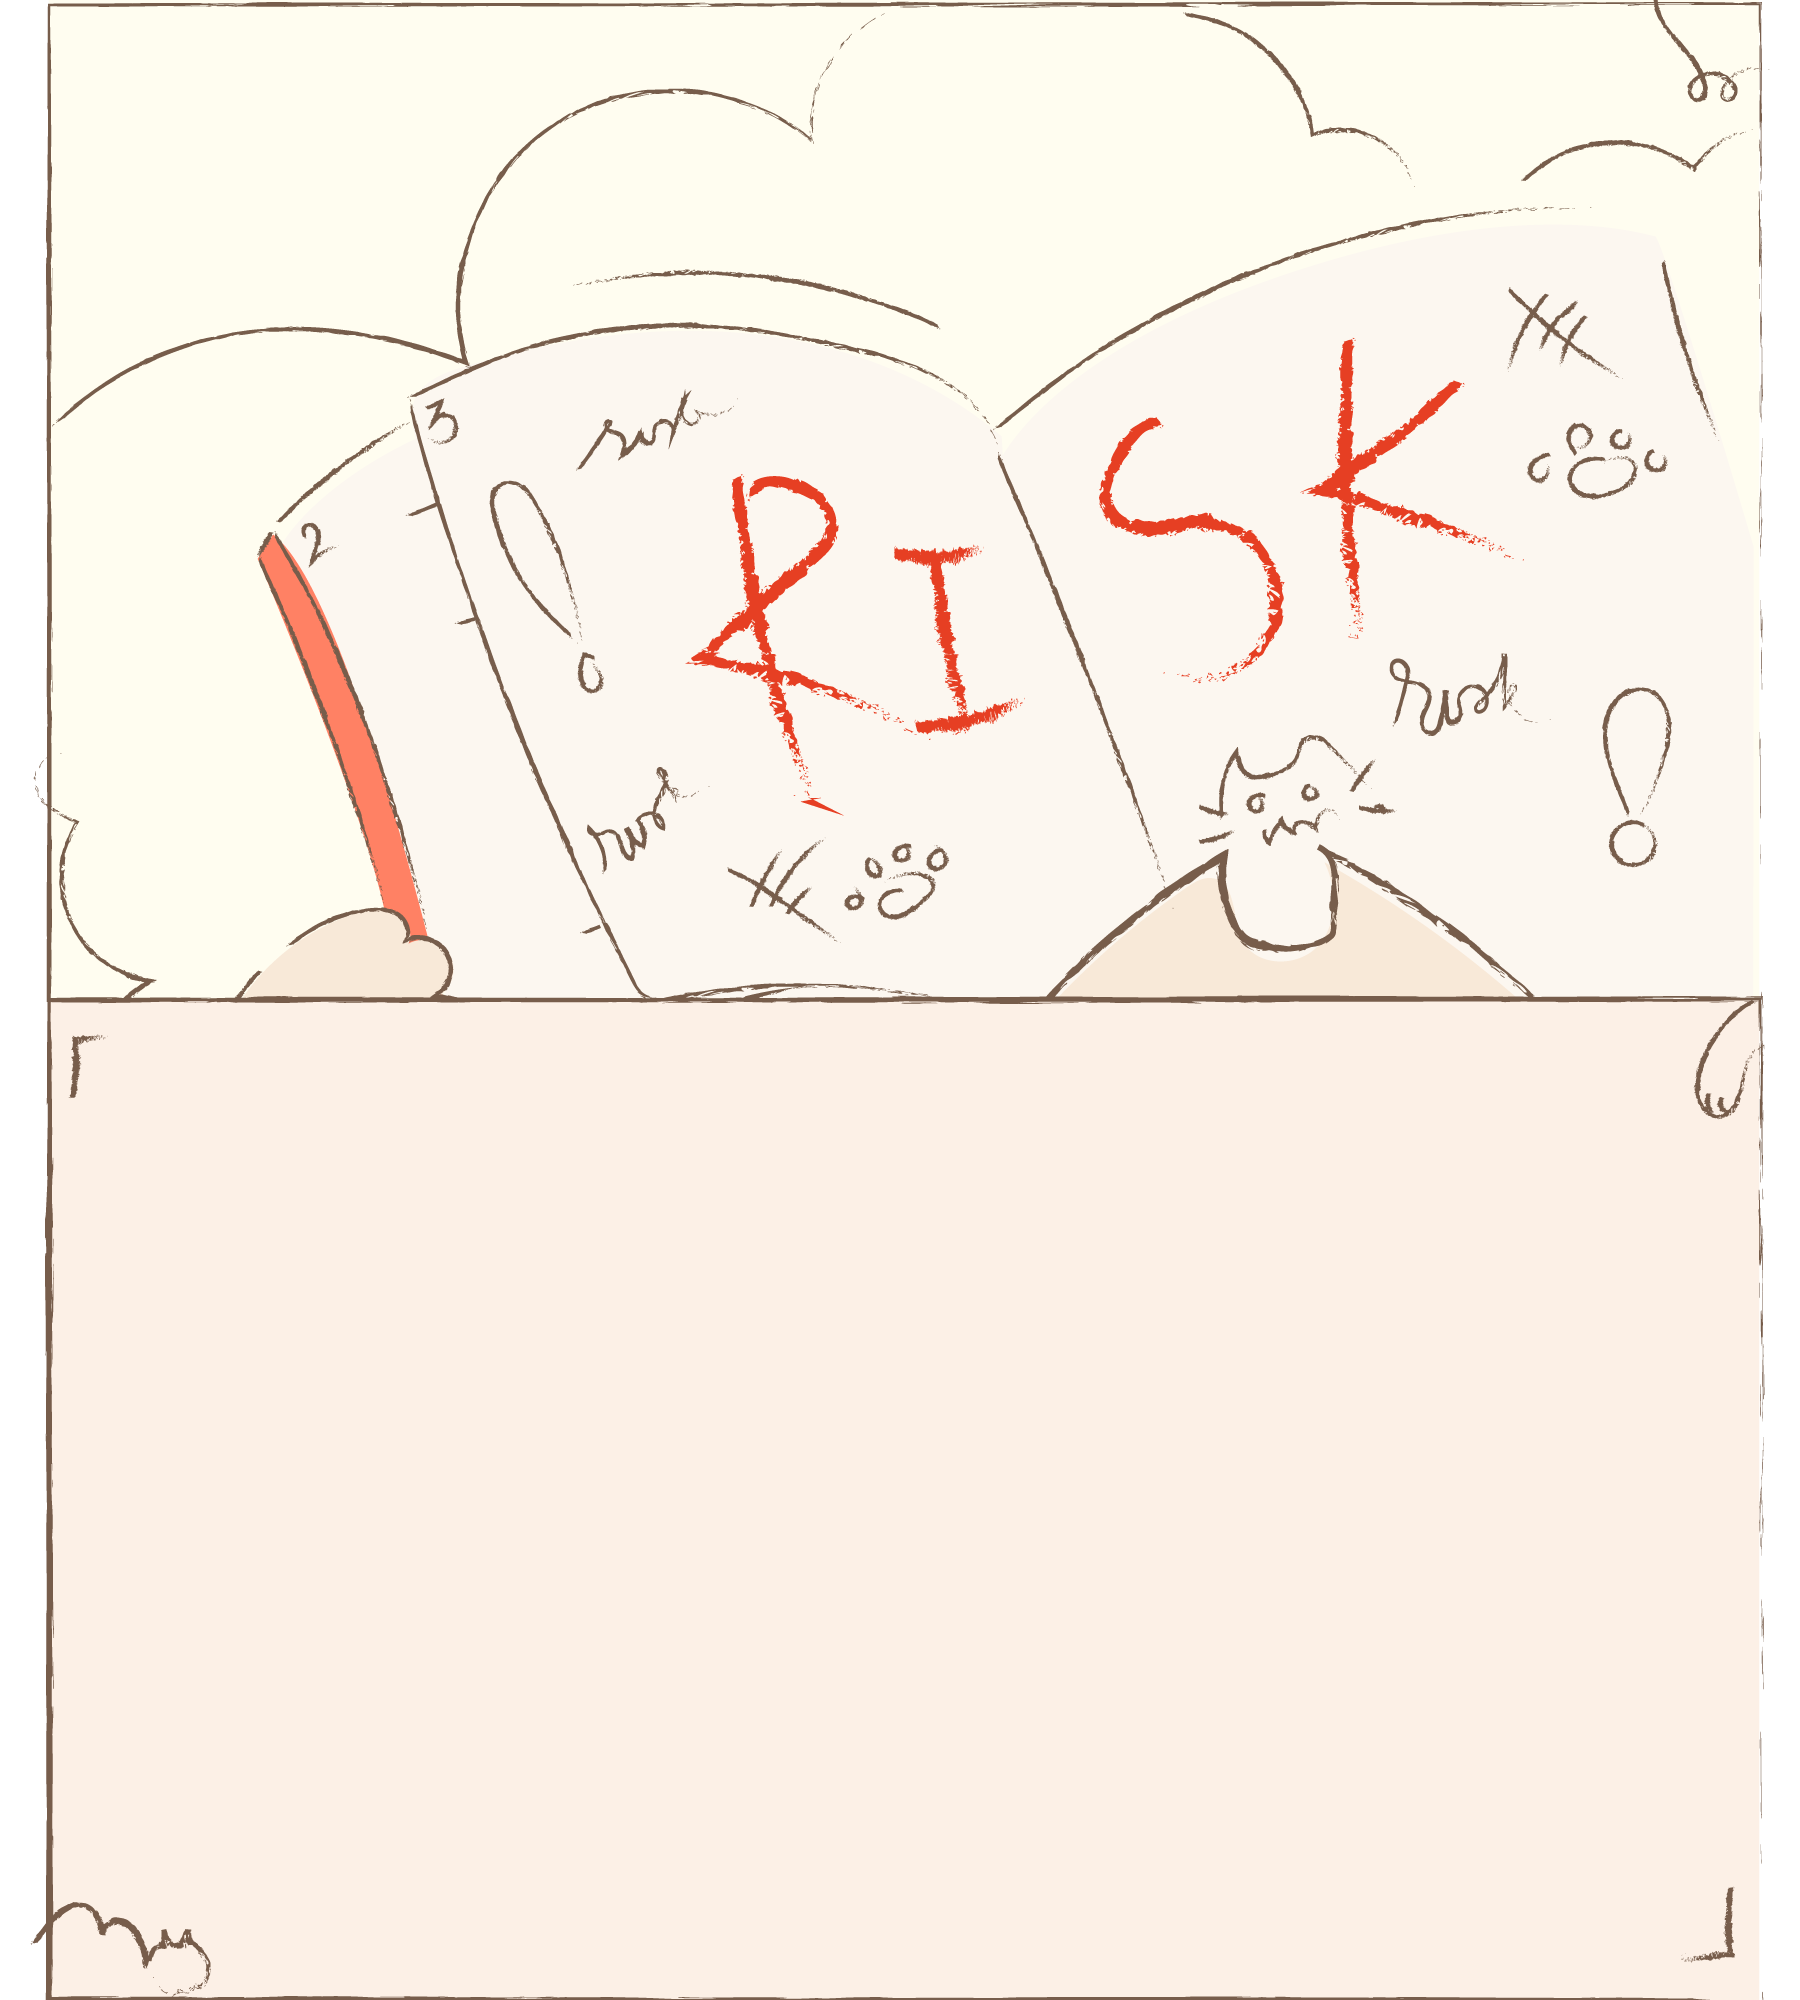 3
risk
2
RISK
risk
risk